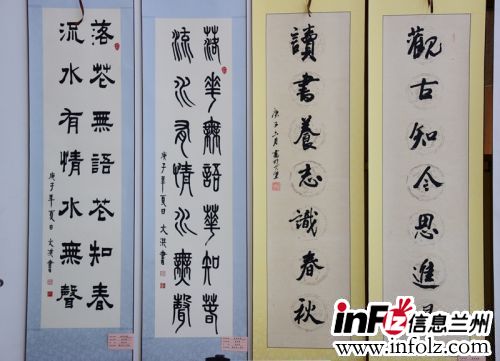 觀古知今思進
讀書養志識春秋
庚子六月
落華無語華知春
流水有情水無聲
庚子年夏日文洪書
落花無語花知春
流水有情水無聲
庚子年夏日文洪書
inflz信息兰州
www.infolz.com